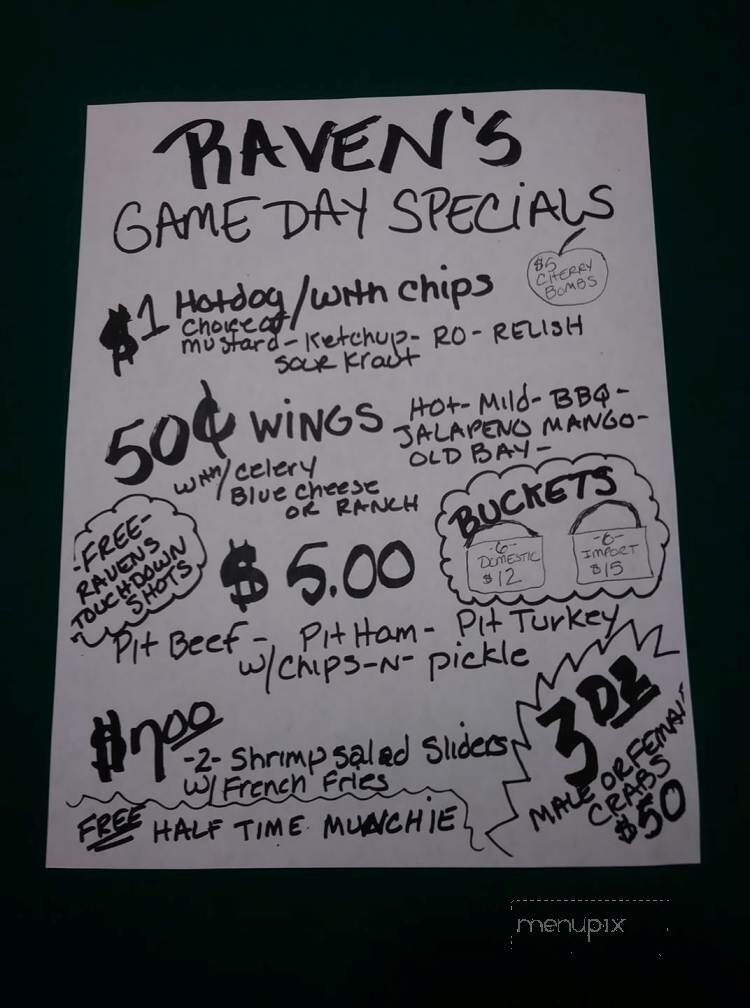 RAVEN'S
GAME DAY SPECIALS
$5
CHERRY
BOMBS
$1 Hotdog/with chips
choice of
mustard- Ketchup- RO- RELISH
sour kraut
50¢ WINGS
HOT- Mild- BBQ-
JALAPENO MANGO-
OLD BAY-
with/celery
Blue cheese
OR RANCH
BUCKETS
-6-
DOMESTIC
$12
-6-
IMPORT
$15
-FREE-
RAVENS
TOUCHDOWN
SHOTS
$5.00
Pit Beef- Pit Ham- Pit Turkey
w/CHIPS-N- pickle
$7.00
-2- Shrimp salad Sliders
w/French Fries
3 DZ
MALE OR FEMALE
CRABS
$50
FREE HALF TIME MUNCHIE
menupix